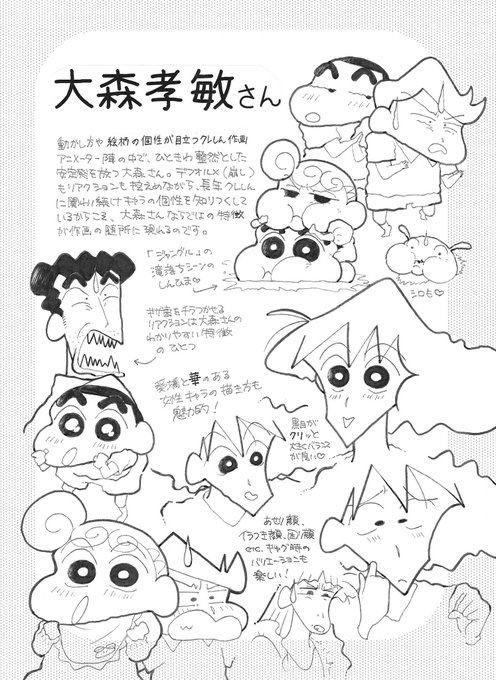 大森孝敏さん
動かし方や絵柄の個性が目立つクレしん作画
アニメーター陣の中で、ひときわ整然とした
安定感を放つ大森さん。デフォルメ(崩し)
もリアクションも控えめながら、長年クレしん
に関わり続けキャラの個性を知りつくして
いるからこそ、大森さんならではの特徴
が作画の随所に現れるのです。
「ジャングル」の
滝落ちシーンの
しんひま♡
シロも♡
ギザ歯をチラつかせる
リアクションは大森さんの
わかりやすい特徴
のひとつ
愛嬌と華のある
女性キャラの描き方も
魅力的!
黒目が
クリッと
大きくバランス
が良い♡
あせり顔、
イラつき顔、困り顔
etc. ギャグ時の
バリエーションも
楽しい!